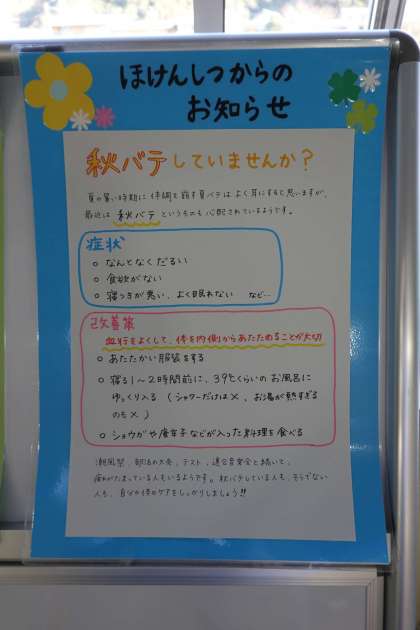 ほけんしつからの
お知らせ
秋バテしていませんか？
夏の暑い時期に体調を崩す夏バテはよく耳にすると思いますが、
最近は秋バテというものも心配されているようです。
症状
○ なんとなくだるい
○ 食欲がない
○ 寝つきが悪い、よく眠れない など…
改善策
血行をよくして、体を内側からあたためることが大切
○ あたたかい服装をする
○ 寝る1～2時間前に、39℃くらいのお風呂に
ゆっくり入る（シャワーだけは×、お湯が熱すぎる
のも×）
○ ショウガや唐辛子などが入った料理を食べる
潮風祭、駅伝大会、テスト、連合音楽会と続いて、
疲れがたまっている人もいるようです。秋バテしている人も、そうでない
人も、自分の体のケアをしっかりしましょう!!